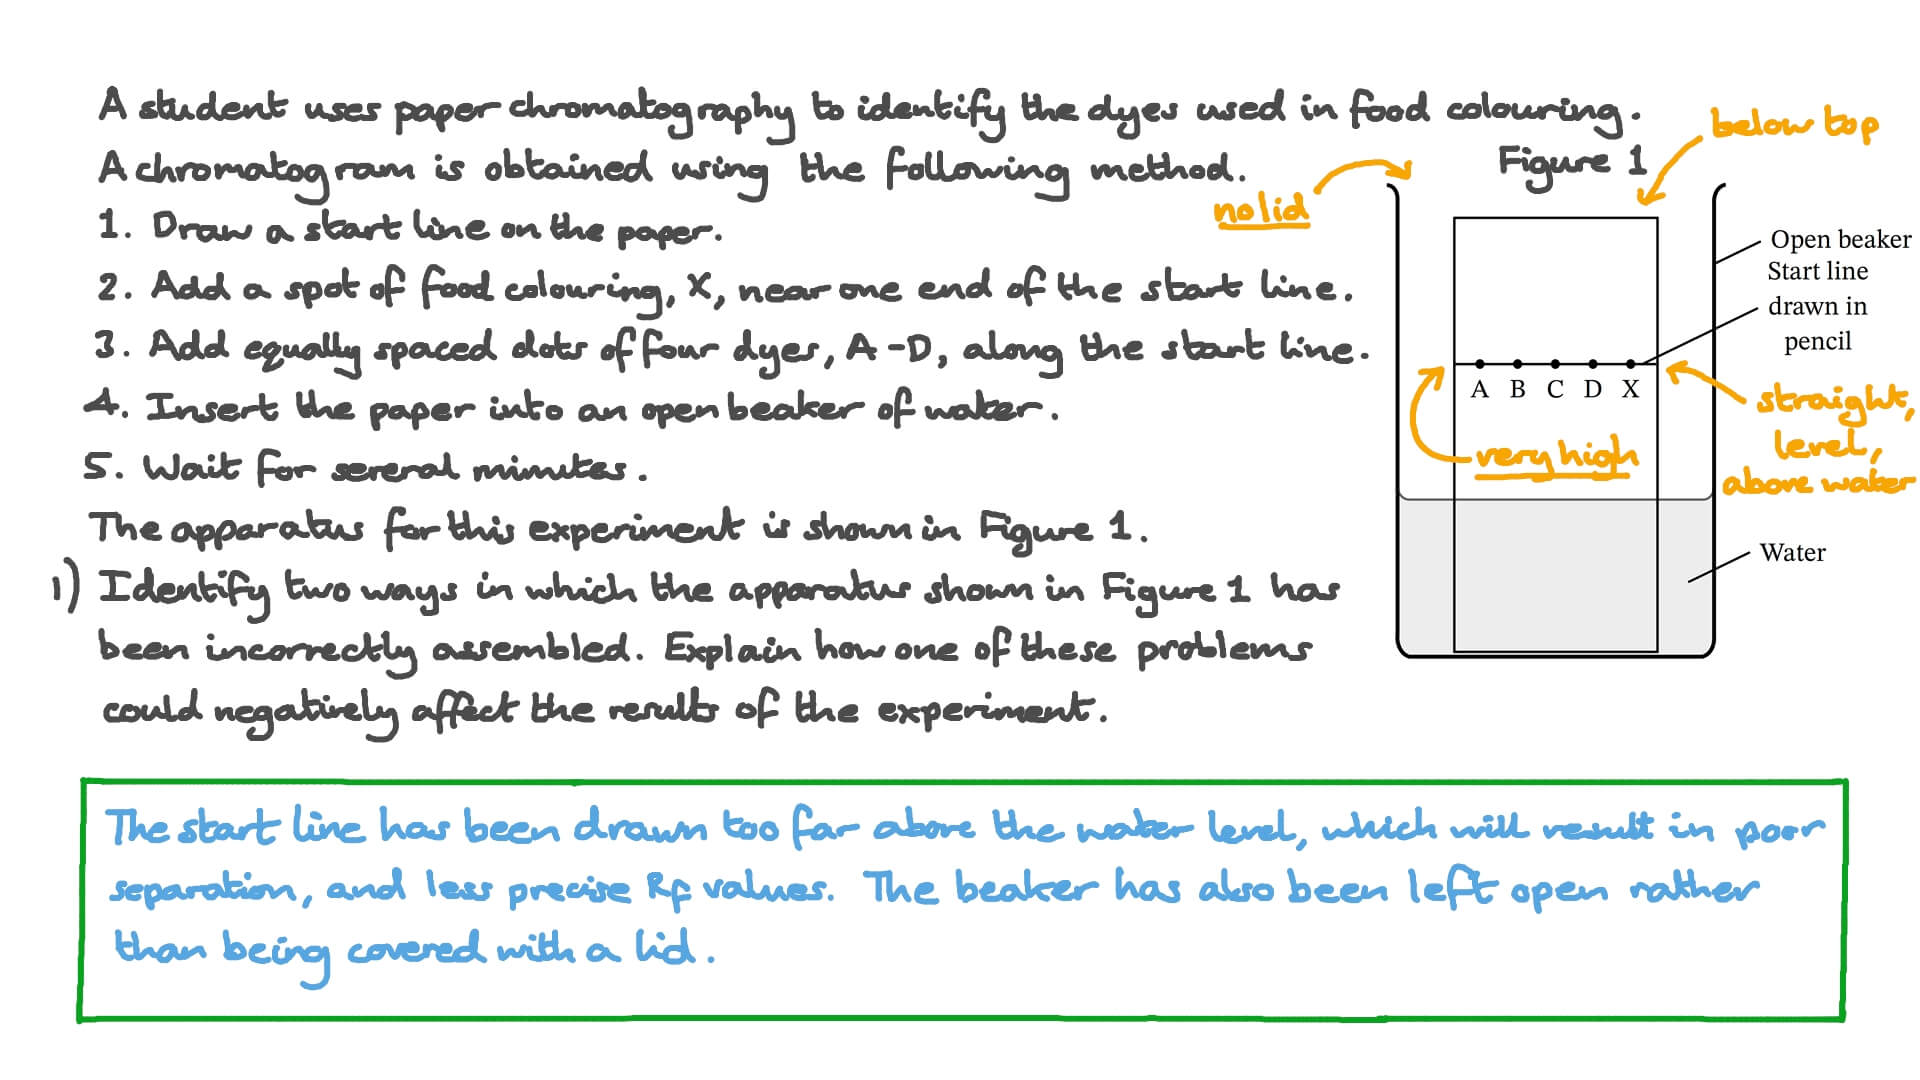 A student uses paper chromatography to identify the dyes used in food colouring.
A chromatogram is obtained using the following method.
1. Draw a start line on the paper.
2. Add a spot of food colouring, X, near one end of the start line.
3. Add equally spaced dots of four dyes, A-D, along the start line.
4. Insert the paper into an open beaker of water.
5. Wait for several minutes.
The apparatus for this experiment is shown in Figure 1.
1) Identify two ways in which the apparatus shown in Figure 1 has
been incorrectly assembled. Explain how one of these problems
could negatively affect the results of the experiment.
below top
Figure 1
no lid
Open beaker
Start line
drawn in
pencil
A B C D X
straight,
level,
above water
very high
Water
The start line has been drawn too far above the water level, which will result in poor
separation, and less precise Rf values. The beaker has also been left open rather
than being covered with a lid.